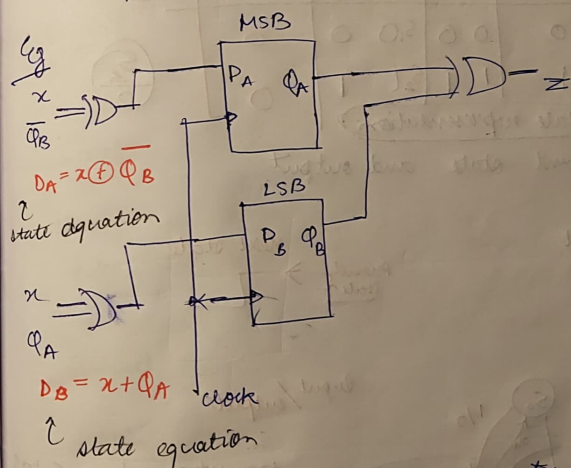 Eg
MSB
x
Q̅B
DA QA
Z
DA = x ⊕ Q̅B
state dquation
LSB
DB QB
x
QA
DB = x + QA
clock
state equation